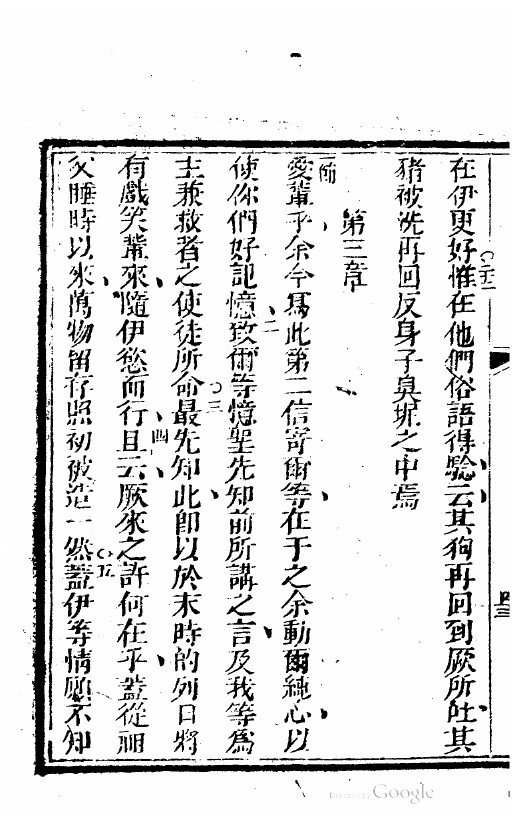 在伊更好惟在他們俗語得驗云其狗再回到厥所吐其
二二
豬被洗再回反身子臭坭之中焉
第三章
一節
愛輩乎余今爲此第二信寄爾等在于之余動爾純心以
二
使你們好記憶致爾等憶聖先知前所講之言及我等爲
三
主兼救者之使徒所命最先知此卽以於末時的列日將
有戲笑輩來隨伊慾而行且云厥來之許何在乎蓋從祖
四
父睡時以來萬物留存照初被造一然蓋伊等情願不知
五
Digitized by Google